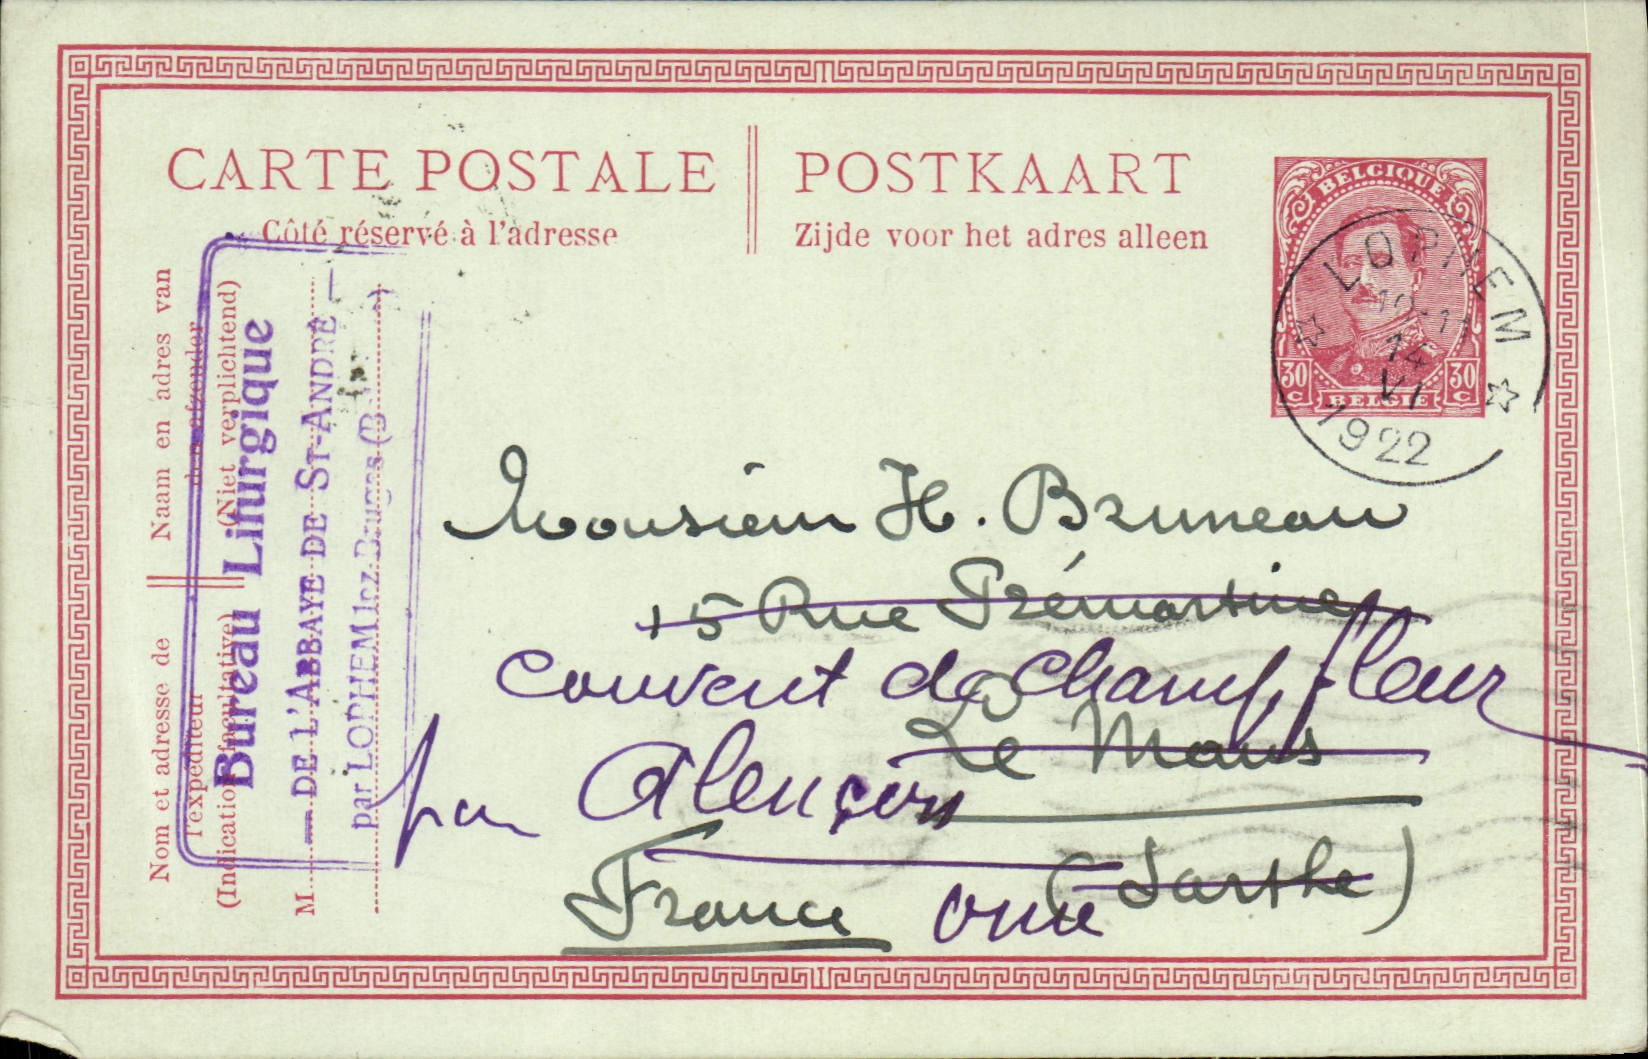 CARTE POSTALE
Côté réservé à l'adresse
POSTKAART
Zijde voor het adres alleen
BELGIQUE
30 C
BELGIË
30 C
LOPHEM
14
VI
1922
Naam en adres van
den afzender
(Niet verplichtend)
Nom et adresse de
l'expéditeur
(Indication facultative)
M
Bureau Liturgique
— DE L'ABBAYE DE ST-ANDRÉ —
par LOPHEM lez-Bruges (B
Monsieur H. Bruneau
15 Rue Prémartine
Couvent de Champfleur
Le Mans
par Alençon
(Sarthe)
France orne